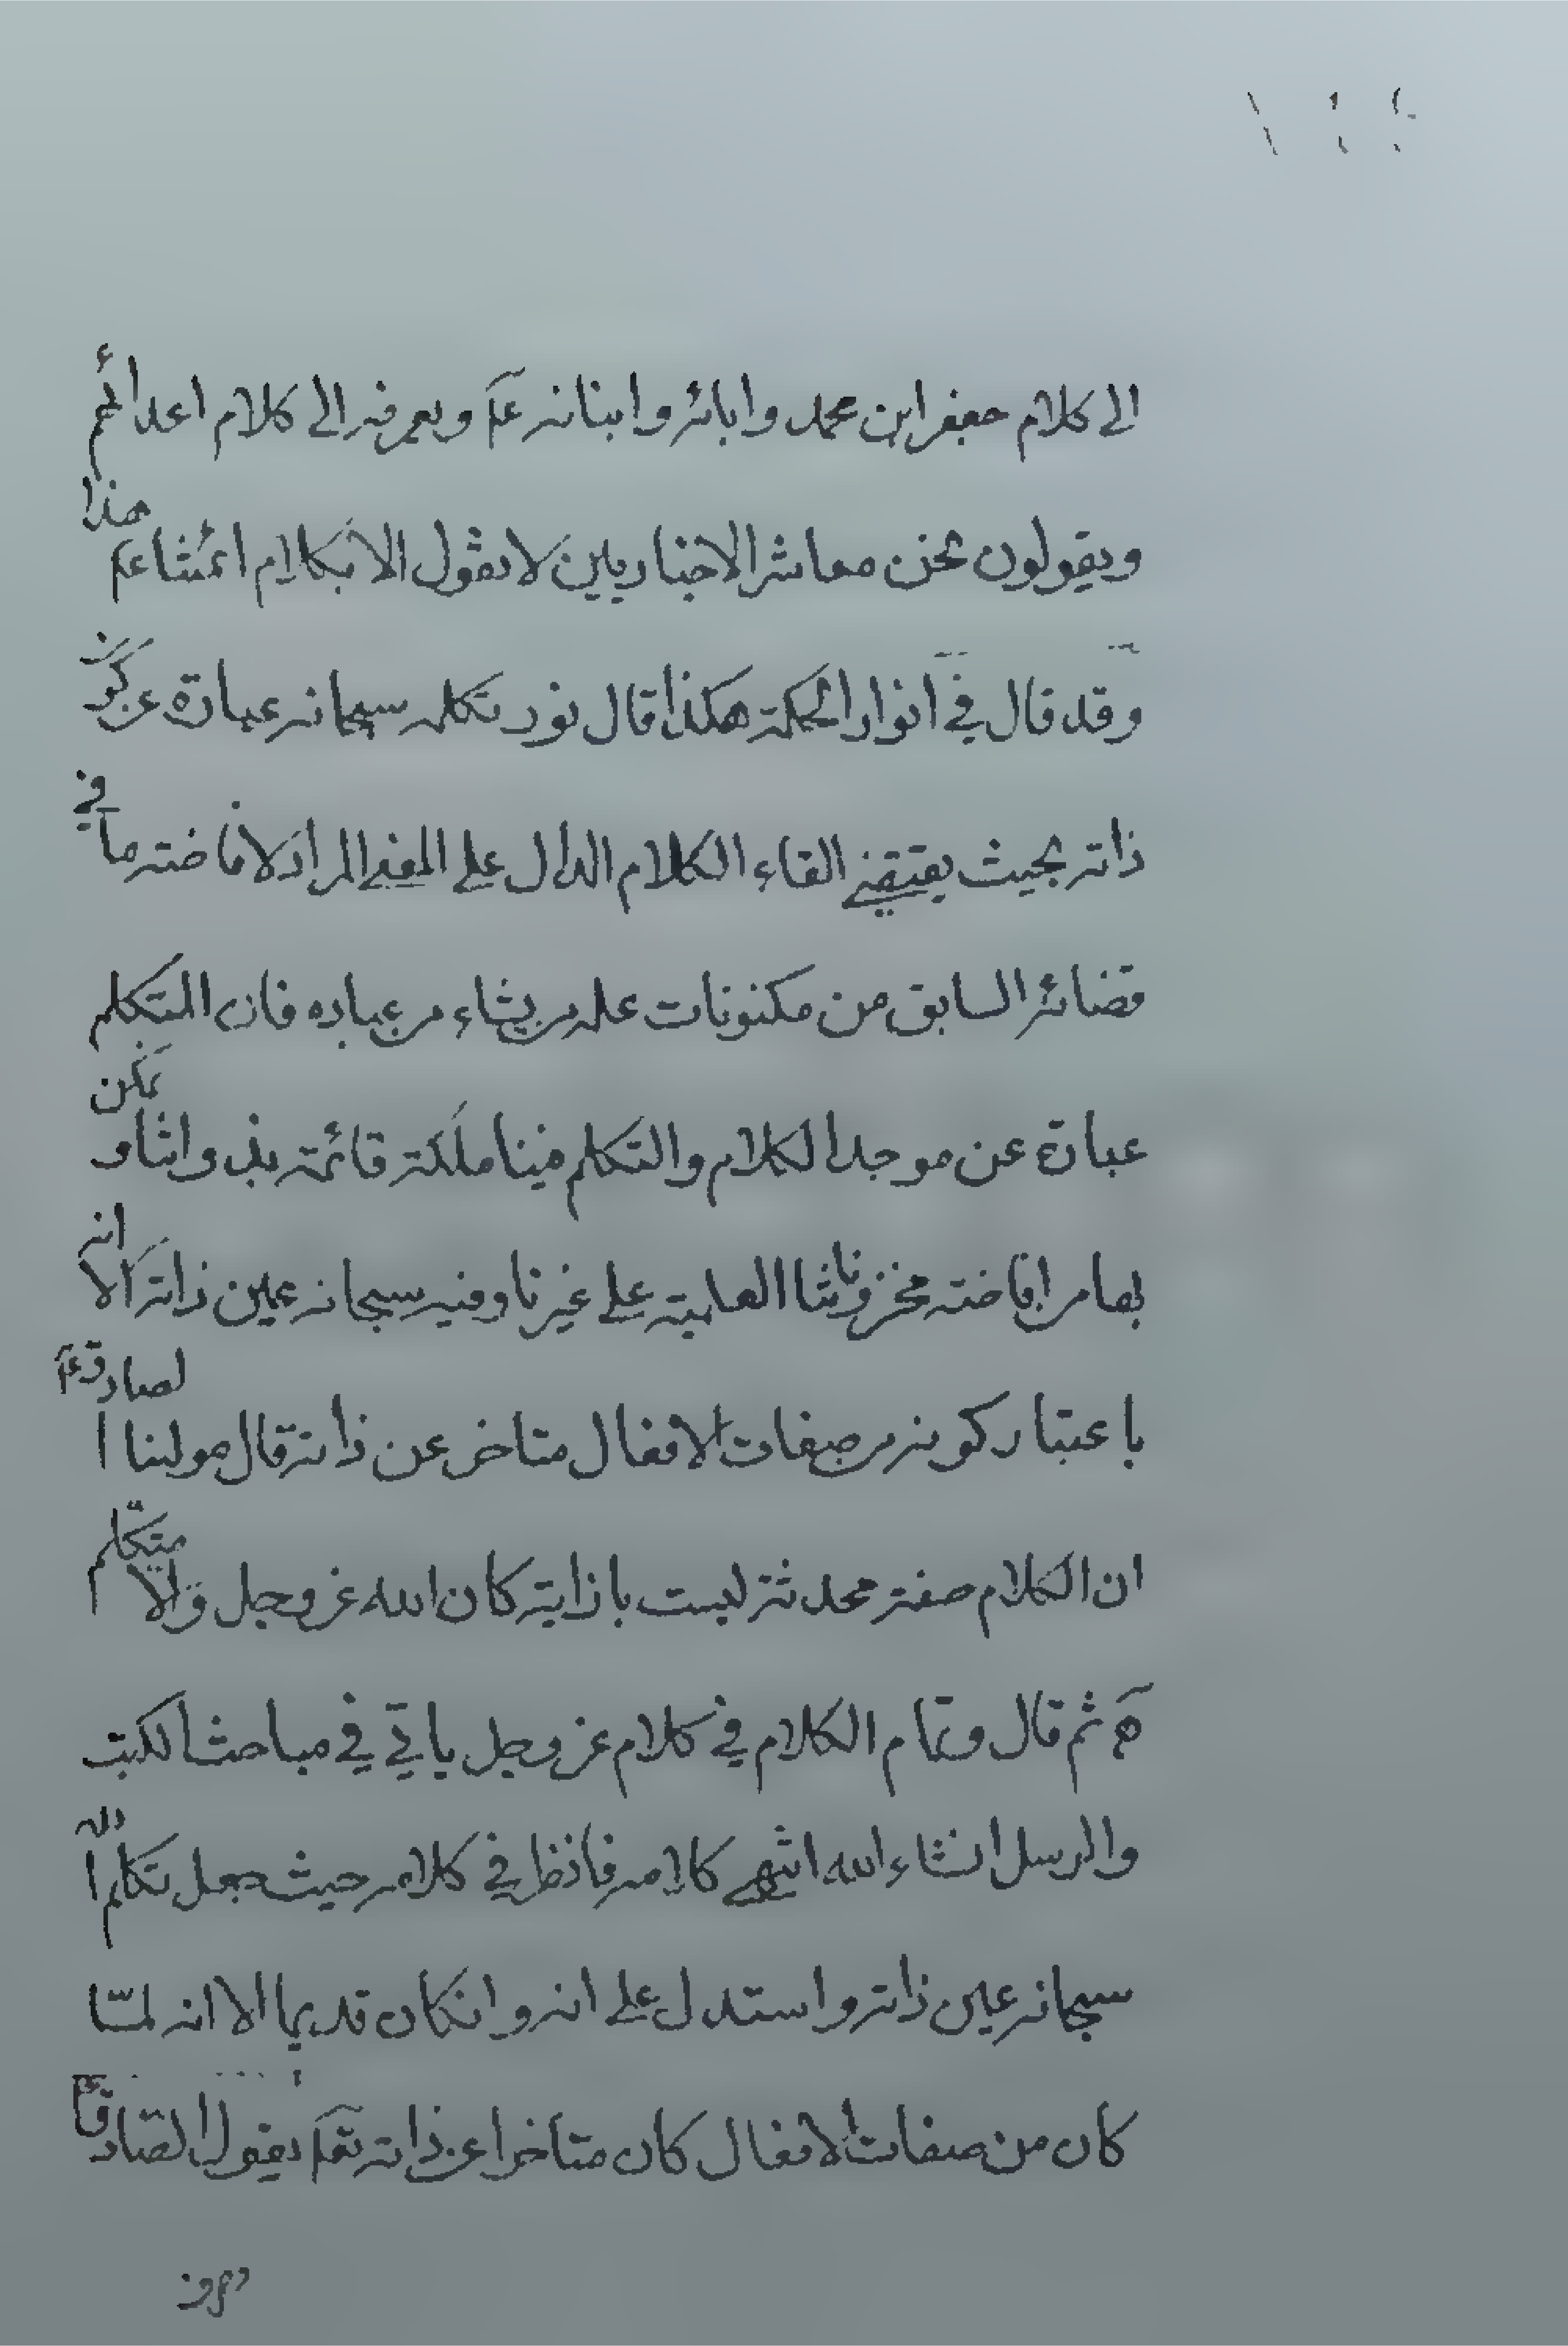 الى كلام جعفر ابن محمد وابائه وابنائه عم ويصرفه الى كلام اعدائهم
ويقولون نحن معاشر الاخباريين لا نقول الا بكلام ائمتنا عم هذا
وقد قال في انوار الحكمة هكذا قال نور تكلمه سبحانه عبارة عن كون
ذاته بحيث يقتضي القاء الكلام الدال على المعنى المراد لافاضته ما في
قضائه السابق من مكنونات علمه من يشاء من عباده فان المتكلم
عبارة عن موجد الكلام والتكلم فينا ملكة قائمة بذواتنا نتمكن
بها من افاضته مخزوناتنا العلمية على غيرنا وفيه سبحانه عين ذاته الا انه
باعتبار كونه من صفات الافعال متاخر عن ذاته قال مولينا الصادق عم
ان الكلام صفة محدثة ليست بازلية كان الله عز وجل ولا متكلم
ثم قال وتمام الكلام في كلام عز وجل ياتي في مباحث الكتب
والرسل انشاء الله انتهى كلامه فانظر في كلامه حيث جعل تكلم الله
سبحانه عين ذاته واستدل على انه وانكان قديما الا انه لمّا
كان من صفات الافعال كان متاخرا عن ذاته تعم بقول الصادق عم